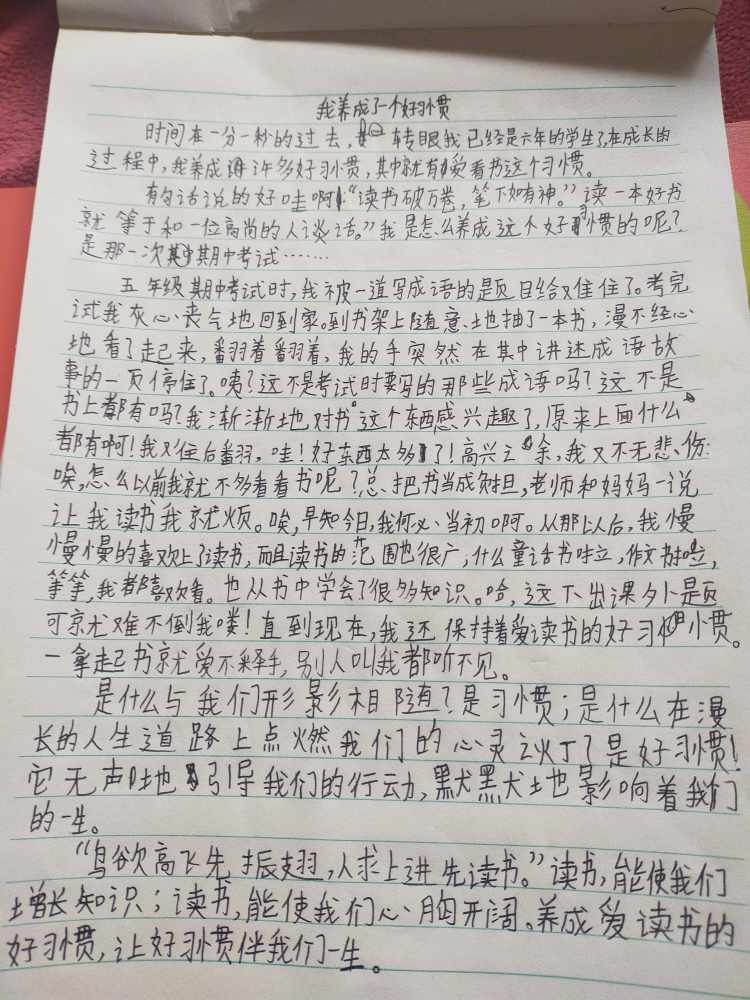 我养成了一个好习惯
时间在一分一秒的过去，转眼我已经是六年的学生了，在成长的
过程中，我养成许多好习惯，其中就有爱看书这个习惯。
有句话说的好哇啊：“读书破万卷，笔下如有神。”读一本好书
就等于和一位高尚的人谈话。”我是怎么养成这个好习惯的呢？
是那一次期中考试……
五年级期中考试时，我被一道写成语的题目给难住了。考完
试我灰心丧气地回到家。到书架上随意地抽了一本书，漫不经心
地看了起来，翻着翻着，我的手突然在其中讲述成语故
事的一页停住了。咦？这不是考试时要写的那些成语吗？这不是
书上都有吗？我渐渐地对书这个东西感兴趣了，原来上面什么
都有啊！我又往后翻，哇！好东西太多了！高兴之余，我又不无悲伤：
唉，怎么以前我就不多看看书呢？总把书当成负担，老师和妈妈一说
让我读书我就烦。唉，早知今日，我何必当初啊。从那以后，我慢
慢慢的喜欢上了读书，而且读书的范围也很广，什么童话书啦，作文书啦，
等等，我都喜欢看。也从书中学会了很多知识。哈，这下出课外题
可就难不倒我喽！直到现在，我还保持着爱读书的好习惯。
一拿起书就爱不释手，别人叫我都听不见。
是什么与我们形影相随？是习惯；是什么在漫
长的人生道路上点燃我们的心灵之灯？是好习惯！
它无声地引导我们的行动，默默地影响着我们
的一生。
“鸟欲高飞先振翅，人求上进先读书。”读书，能使我们
增长知识；读书，能使我们心胸开阔。养成爱读书的
好习惯，让好习惯伴我们一生。